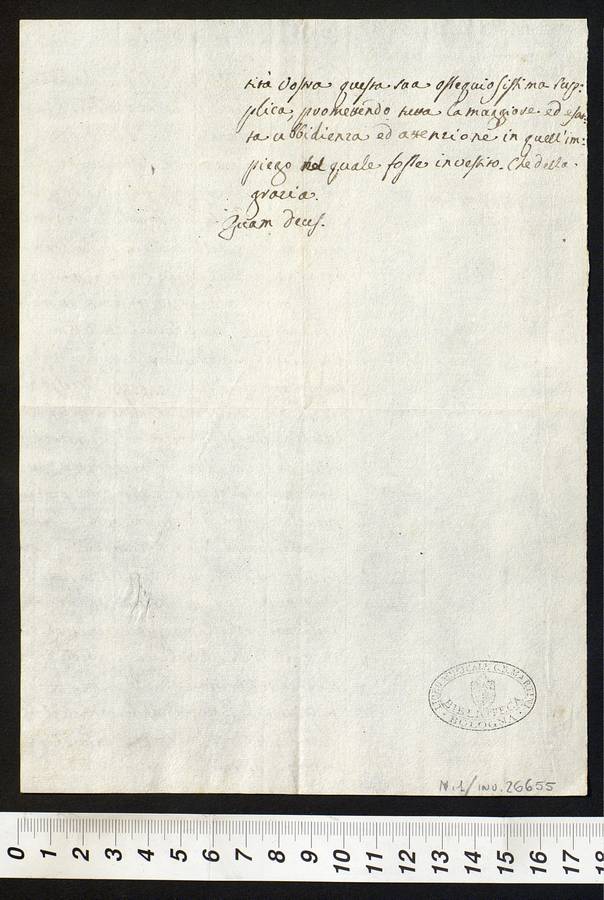 tità Vostra questa sua ossequiosissima sup:
plica, promettendo tutta la maggiore ed esat:
ta ubbidienza ed attenzione in quell'im:
piego nel quale fosse investito. Che della
grazia.
Quam Deus.
LICEO MUSICALE G.B. MARTINI
BIBLIOTECA
BOLOGNA
N.1/INV.26655
0 1 2 3 4 5 6 7 8 9 10 11 12 13 14 15 16 17 18